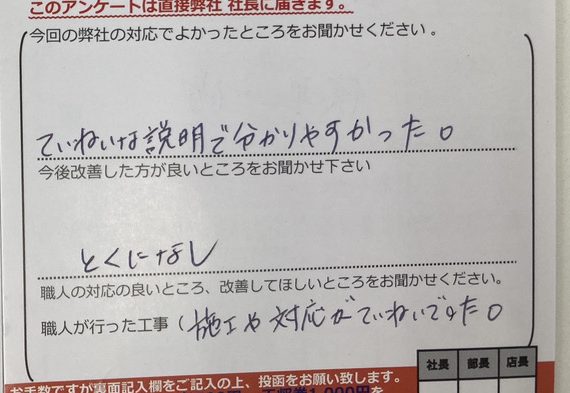 このアンケートは直接弊社 社長に届きます。
今回の弊社の対応でよかったところをお聞かせください。
ていねいな説明で分かりやすかった。
今後改善した方が良いところをお聞かせ下さい
とくになし
職人の対応の良いところ、改善してほしいところをお聞かせください。
職人が行った工事(施工や対応がていねいでした。
社長 部長 店長
お手数ですが裏面記入欄をご記入の上、投函をお願い致します。